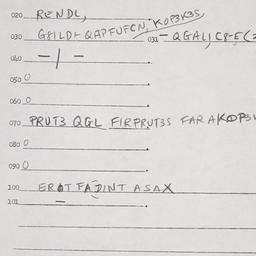 020 RENDL,
030 GFILDL QAPFUFCN, KOP3K3S,
031 - QGAL, C8-E(
040 - / -
050 0
060 0
070 PRUT3 QGL FIRPRUT3S FAR AKOP3
080 0
090 0
100 EROT FADINT ASAX
101 -